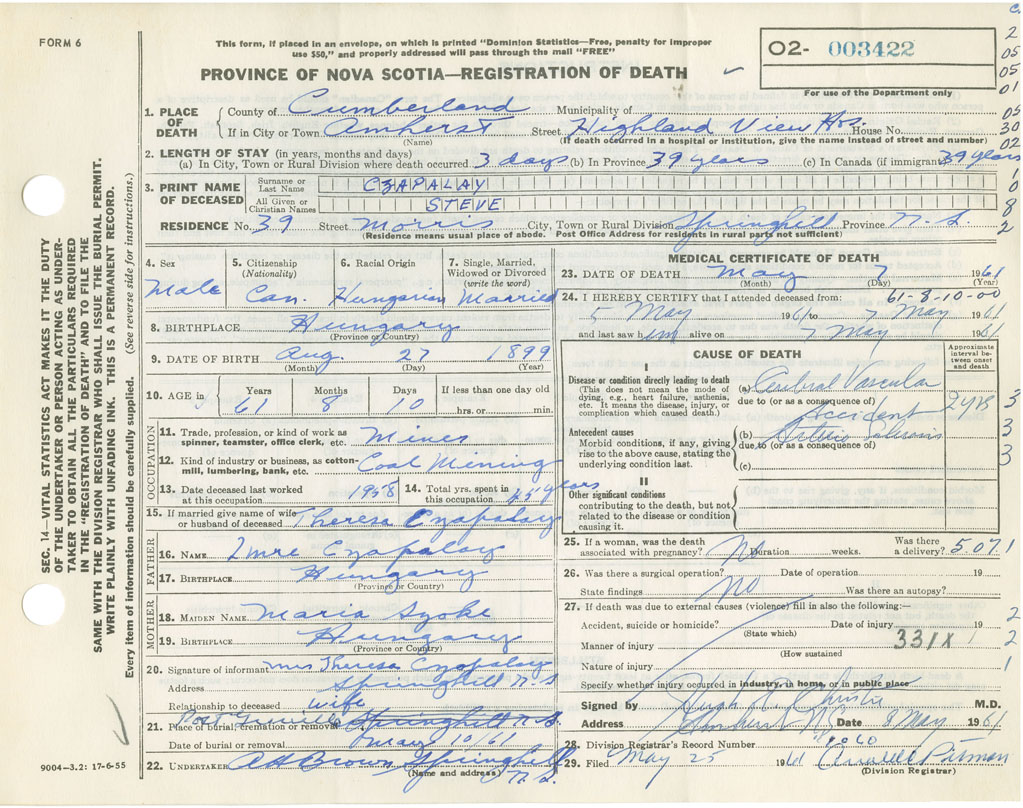 FORM 6
This form, if placed in an envelope, on which is printed "Dominion Statistics—Free, penalty for improper
use $50," and properly addressed will pass through the mail "FREE"
PROVINCE OF NOVA SCOTIA—REGISTRATION OF DEATH
02- 003422
For use of the Department only
SEC. 14—VITAL STATISTICS ACT MAKES IT THE DUTY
OF THE UNDERTAKER OR PERSON ACTING AS UNDER-
TAKER TO OBTAIN ALL THE PARTICULARS REQUIRED
IN THE "REGISTRATION OF DEATH" AND TO FILE THE
SAME WITH THE DIVISION REGISTRAR WHO SHALL ISSUE THE BURIAL PERMIT.
WRITE PLAINLY WITH UNFADING INK. THIS IS A PERMANENT RECORD.
Every item of information should be carefully supplied. (See reverse side for instructions.)
1. PLACE OF DEATH County of Cumberland Municipality of
If in City or Town Amherst Street Highland View Hos. House No.
(Name) (If death occurred in a hospital or institution, give the name instead of street and number)
2. LENGTH OF STAY (in years, months and days)
(a) In City, Town or Rural Division where death occurred 3 days (b) In Province 39 years (c) In Canada (if immigrant) 39 years
3. PRINT NAME OF DECEASED Surname or Last Name CZAPALAY
All Given or Christian Names STEVE
RESIDENCE No. 39 Street Morris City, Town or Rural Division Springhill Province N.S.
(Residence means usual place of abode. Post Office Address for residents in rural parts not sufficient)
4. Sex Male
5. Citizenship (Nationality) Can.
6. Racial Origin Hungarian
7. Single, Married, Widowed or Divorced (write the word) Married
8. BIRTHPLACE Hungary
(Province or Country)
9. DATE OF BIRTH Aug. 27 1899
(Month) (Day) (Year)
10. AGE in Years 61 Months 8 Days 10 If less than one day old hrs. or min.
OCCUPATION
11. Trade, profession, or kind of work as spinner, teamster, office clerk, etc. Miner
12. Kind of industry or business, as cotton-mill, lumbering, bank, etc. Coal Mining
13. Date deceased last worked at this occupation 1958
14. Total yrs. spent in this occupation years
15. If married give name of wife or husband of deceased Theresa Czapalay
FATHER
16. NAME Imre Czapalay
17. BIRTHPLACE Hungary
(Province or Country)
MOTHER
18. MAIDEN NAME Maria Szoke
19. BIRTHPLACE Hungary
(Province or Country)
20. Signature of informant Mrs Theresa Czapalay
Address Springhill N.S
Relationship to deceased wife
21. Place of burial, cremation or removal Springhill N.S.
Date of burial or removal May 10/61
22. UNDERTAKER AH Brown Springhill N.S.
(Name and address)
9004—3.2: 17-6-55
MEDICAL CERTIFICATE OF DEATH
23. DATE OF DEATH May 7 1961
(Month) (Day) (Year)
61-8-10-00
24. I HEREBY CERTIFY that I attended deceased from:
5 May 1961 to 7 May 1961
and last saw him alive on 7 May 1961
CAUSE OF DEATH
Approximate interval between onset and death
I
Disease or condition directly leading to death
(This does not mean the mode of dying, e.g., heart failure, asthenia, etc. It means the disease, injury, or complication which caused death.)
(a) Cerebral Vascular
due to (or as a consequence of)
Accident
Antecedent causes
Morbid conditions, if any, giving rise to the above cause, stating the underlying condition last.
(b) Arterio Sclerosis
due to (or as a consequence of)
(c)
II
Other significant conditions
contributing to the death, but not related to the disease or condition causing it.
25. If a woman, was the death associated with pregnancy? No Duration weeks. Was there a delivery? 5071
26. Was there a surgical operation? Date of operation 19
State findings No Was there an autopsy?
27. If death was due to external causes (violence) fill in also the following:—
Accident, suicide or homicide? Date of injury 19
(State which)
Manner of injury 331X
(How sustained)
Nature of injury
Specify whether injury occurred in industry, in home, or in public place
Signed by Hugh Christie M.D.
Address Amherst N.S. Date 8 May 1961
28. Division Registrar's Record Number
29. Filed May 25 1961 Pitman
(Division Registrar)